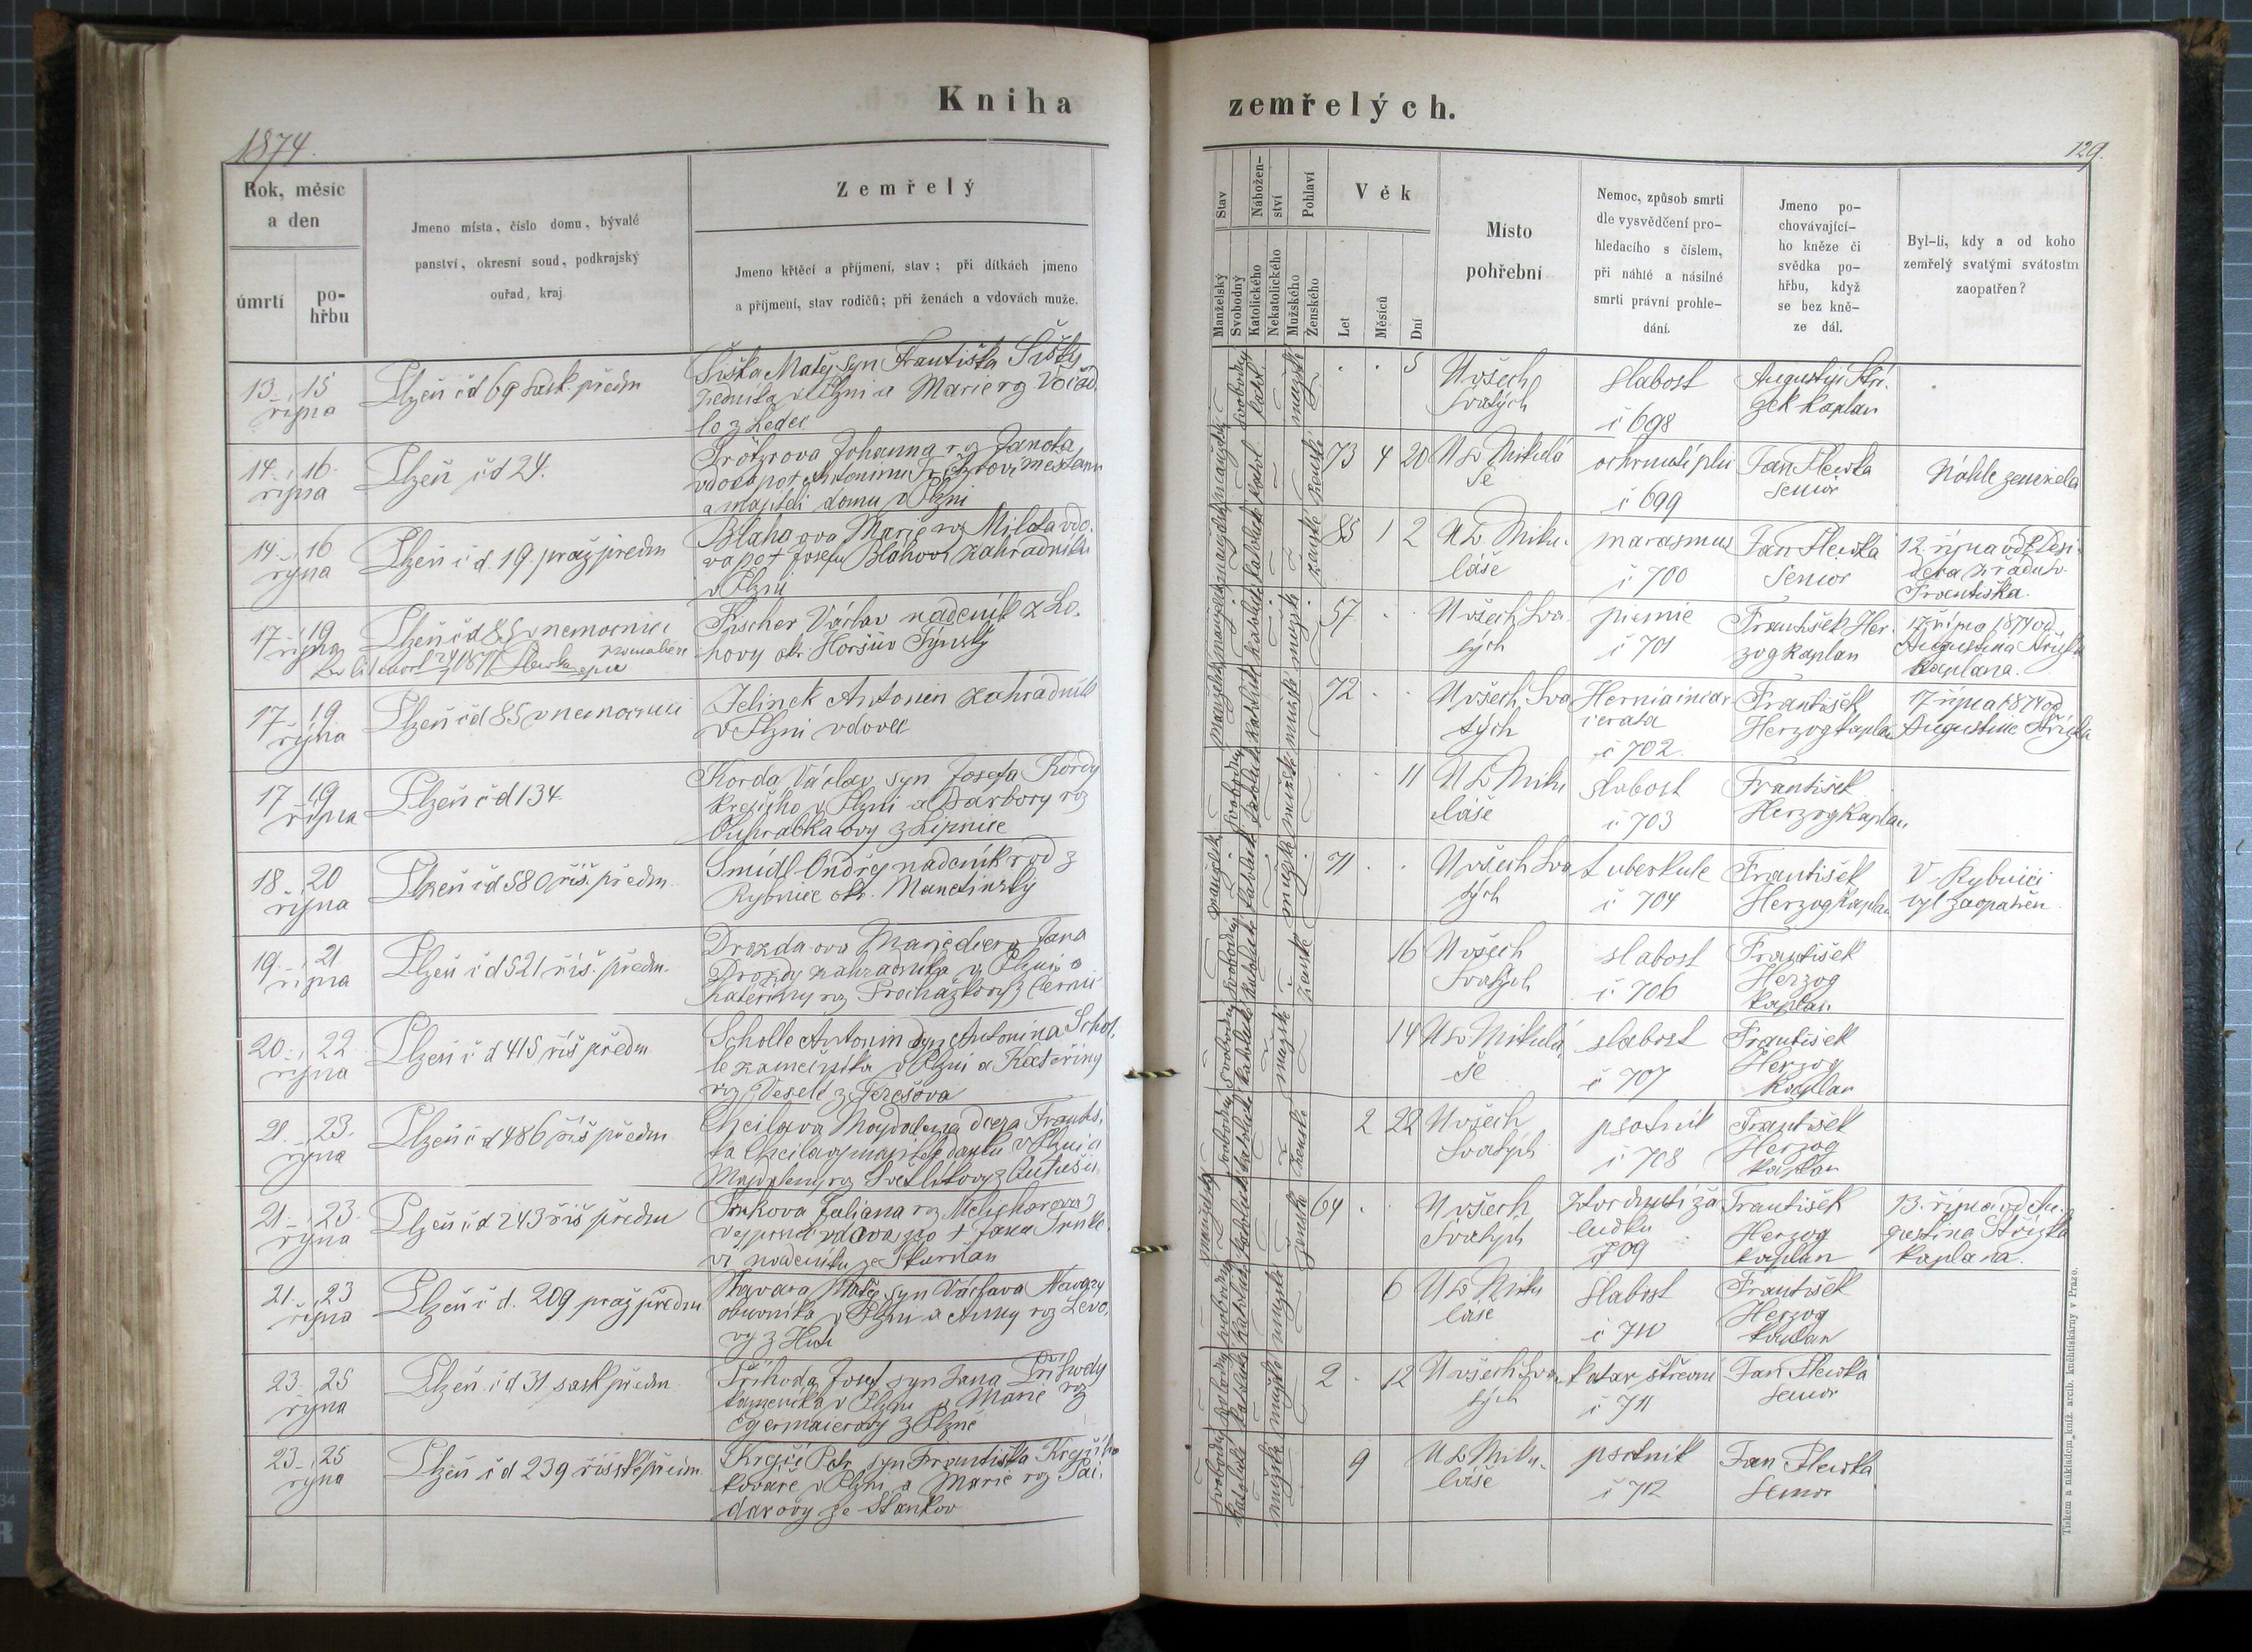 Kniha
zemřelých.
1874.
129.
Rok, měsíc
a den
úmrtí
po-
hřbu
Jmeno místa, číslo domu, bývalé
panství, okresní soud, podkrajský
ouřad, kraj
Zemřelý
Jmeno křtěcí a příjmení, stav; při dítkách jmeno
a příjmení, stav rodičů; při ženách a vdovách muže.
Stav
Manželský
Svobodný
Nábožen-
ství
Katolického
Nekatolického
Pohlaví
Mužského
Ženského
Věk
Let
Měsíců
Dní
Místo
pohřební
Nemoc, způsob smrti
dle vysvědčení pro-
hledacího s číslem,
při náhlé a násilné
smrti právní prohle-
dání.
Jmeno po-
chovávající-
ho kněze či
svědka po-
hřbu, když
se bez kně-
ze dál.
Byl-li, kdy a od koho
zemřelý svatými svátostm
zaopatřen?
13. 15
října
Plzeň čd 69 sask. předm
Šiška Matěj syn Františka Šišky
zedníka v Plzni a Marie rz
lo z Ledec
svobodný
katol.
mužsk
5
U všech
Svatých
slabost
č 698
Augustin Stří-
zek kaplan
14. 16.
října
Plzeň čd 24.
Johanna rz Janota
vdova po + Antonínu měšťanu
a majiteli domu v Plzni
73 4 20
U sv Mikulá
še
ochrnutí plic
č 699
Jan Šlewka
Senior
Náhle zemřela
14. 16
října
Plzeň č d. 19. praž předm
Blahaova Marie rz Milota vdo-
va po + Josefu Bláhovi zahradníku
v Plzni
85 1 2
U sv Miku-
láše
marasmus
č 700
Jan Šlewka
Senior
12. října od Desi-
dera z řádu sv.
Františka.
17. 19
října
Plzeň čd 85 v nemocnici
Fischer Václav nádeník z Lo-
hovy okr. Horšův Týnský
57
U všech Sva
tých
piemie
č 701
František Her-
zog kaplan
17. října 1874 od
Augustina Střízka
kaplana.
17 19
října
Plzeň čd 85 v nemocnici
Jelinek Antonin zahradník
v Plzni vdovec
72
U všech Sva
tých
Hernia incar
cerata
č 702.
František
Herzog kaplan
17. října 1874 od
Augustina Střízka
17 19
října
Plzeň č d 134.
Korda Václav syn Josefa Kordy
krejčího v Plzni a Barbory rz
z Lipnice
11
U sv Miku
láše
slabost
č 703
František
Herzog kaplan
18. 20
října
Plzeň čd 580 říš. předm.
Šmídl Ondřej nádeník rod z
Rybnice okr. Manetínský
71
U všech Sva
tých
tuberkule
č 704
František
Herzog kaplan
V Rybnici
byl zaopatřen
19. 21
října
Plzeň č d 521 říš. předm.
Drozda-ova Marie dcera Jana
Drozdy zahradníka v Plzni a
Kateřiny rz Procházkovy z
16
U všech
Svatých
slabost
č 706
František
Herzog
kaplan
20. 22
října
Plzeň č d 415 říš předm
Scholle Antonin syn Antonina Schol-
le zámečníka v Plzni a Kateřiny
rz Veselé z Terešova
14
U sv Mikulá
še
slabost
č 707
František
Herzog
kaplan
21. 23.
října
Plzeň č d 486 říš předm
Magdalena dcera Františ-
ka majitele domku v Plzni a
Magdaleny rz
2 22
U všech
Svatých
psotník
č 708
František
Herzog
kaplan
21. 23.
října
Plzeň č d 243 říš předm
Juliana rz Melicharova z
vdova po + Janu
vi nádeníku ze Skvrňan
64
U všech
Svatých
ztvrdnutí ža
ludku
709
František
Herzog
kaplan
13. října od Au-
gustina Střízka
kaplana.
21. 23
října
Plzeň č d. 209 praž předm
Navara Matěj syn Václava Navary
obuvníka v Plzni a Anny rz
vy z
6
U sv Miku
láše
slabost
č 710
František
Herzog
kaplan
23. 25
října
Plzeň č d 31 sask předm
Příhoda Josef syn Jana Příhody
kameníka v Plzni a Marie rz
Egermaierovy z Plzně
2 12
U všech Sva
tých
katar střevní
č 711
Jan Šlewka
senior
23. 25
října
Plzeň č d 239 říšské předm.
Krejčí Petr syn Františka Krejčího
kováře v Plzni a Marie rz Pai-
darovy ze Stankov
9
U sv Miku-
láše
psotník
č 712
Jan Šlewka
Senior
Tiskem a nákladem kníž. arcib. kněhtiskárny v Praze.